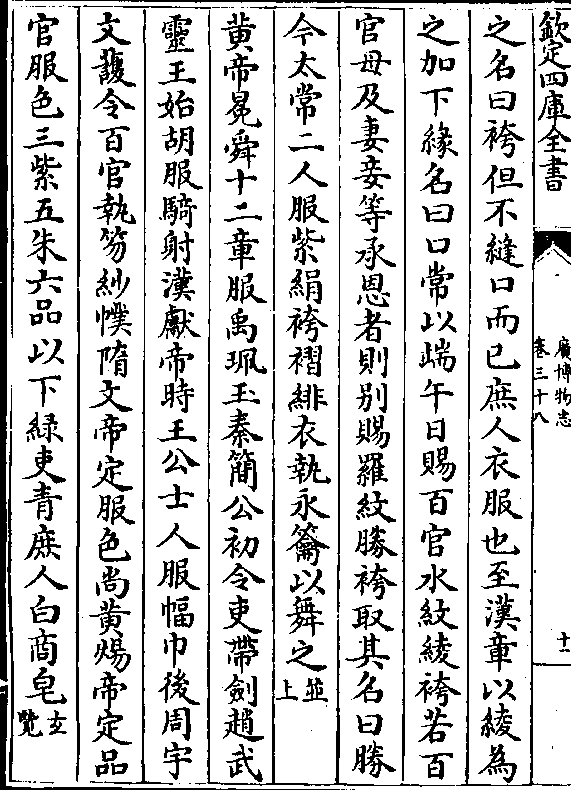 欽定四庫全書
廣博物志
卷三十八
十一
之名曰袴但不縫口而已庶人衣服也至漢章以綾為
之加下緣名曰口常以端午日賜百官水紋綾袴若百
官母及妻妾等承恩者則别賜羅紋勝袴取其名曰勝
今太常二人服紫絹袴褶緋衣執永籥以舞之並上
黄帝冕舜十二章服禹珮玉秦簡公初令吏帶劍趙武
靈王始胡服騎射漢獻帝時王公士人服幅巾後周宇
文護令百官執笏紗幞隋文帝定服色尚黄煬帝定品
官服色三紫五朱六品以下緑吏青庶人白商皂玄覽